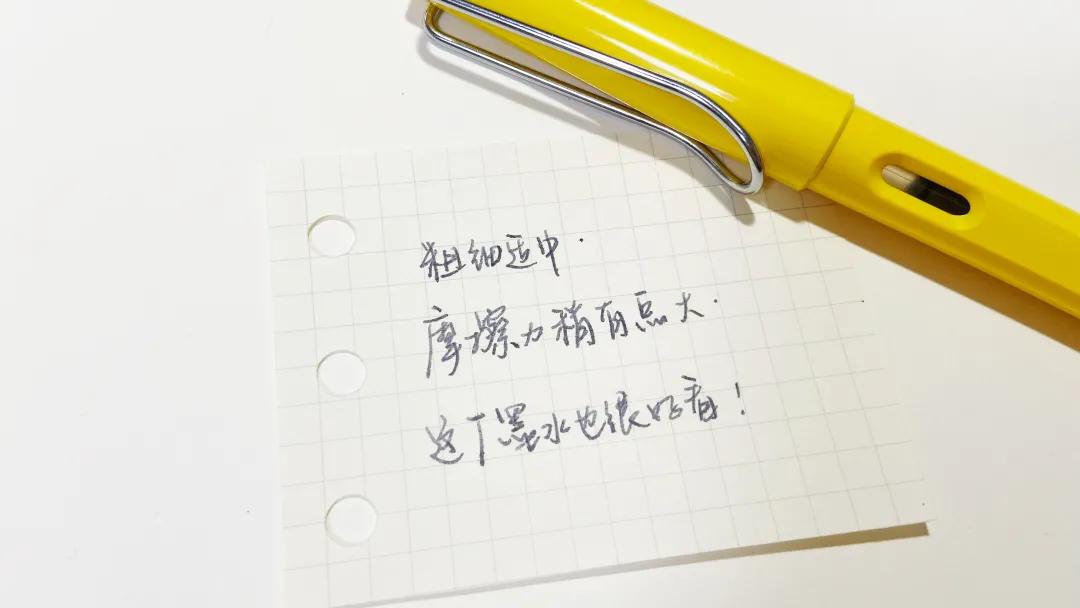 粗细适中.
摩擦力稍有点大.
这个墨水也很好看!